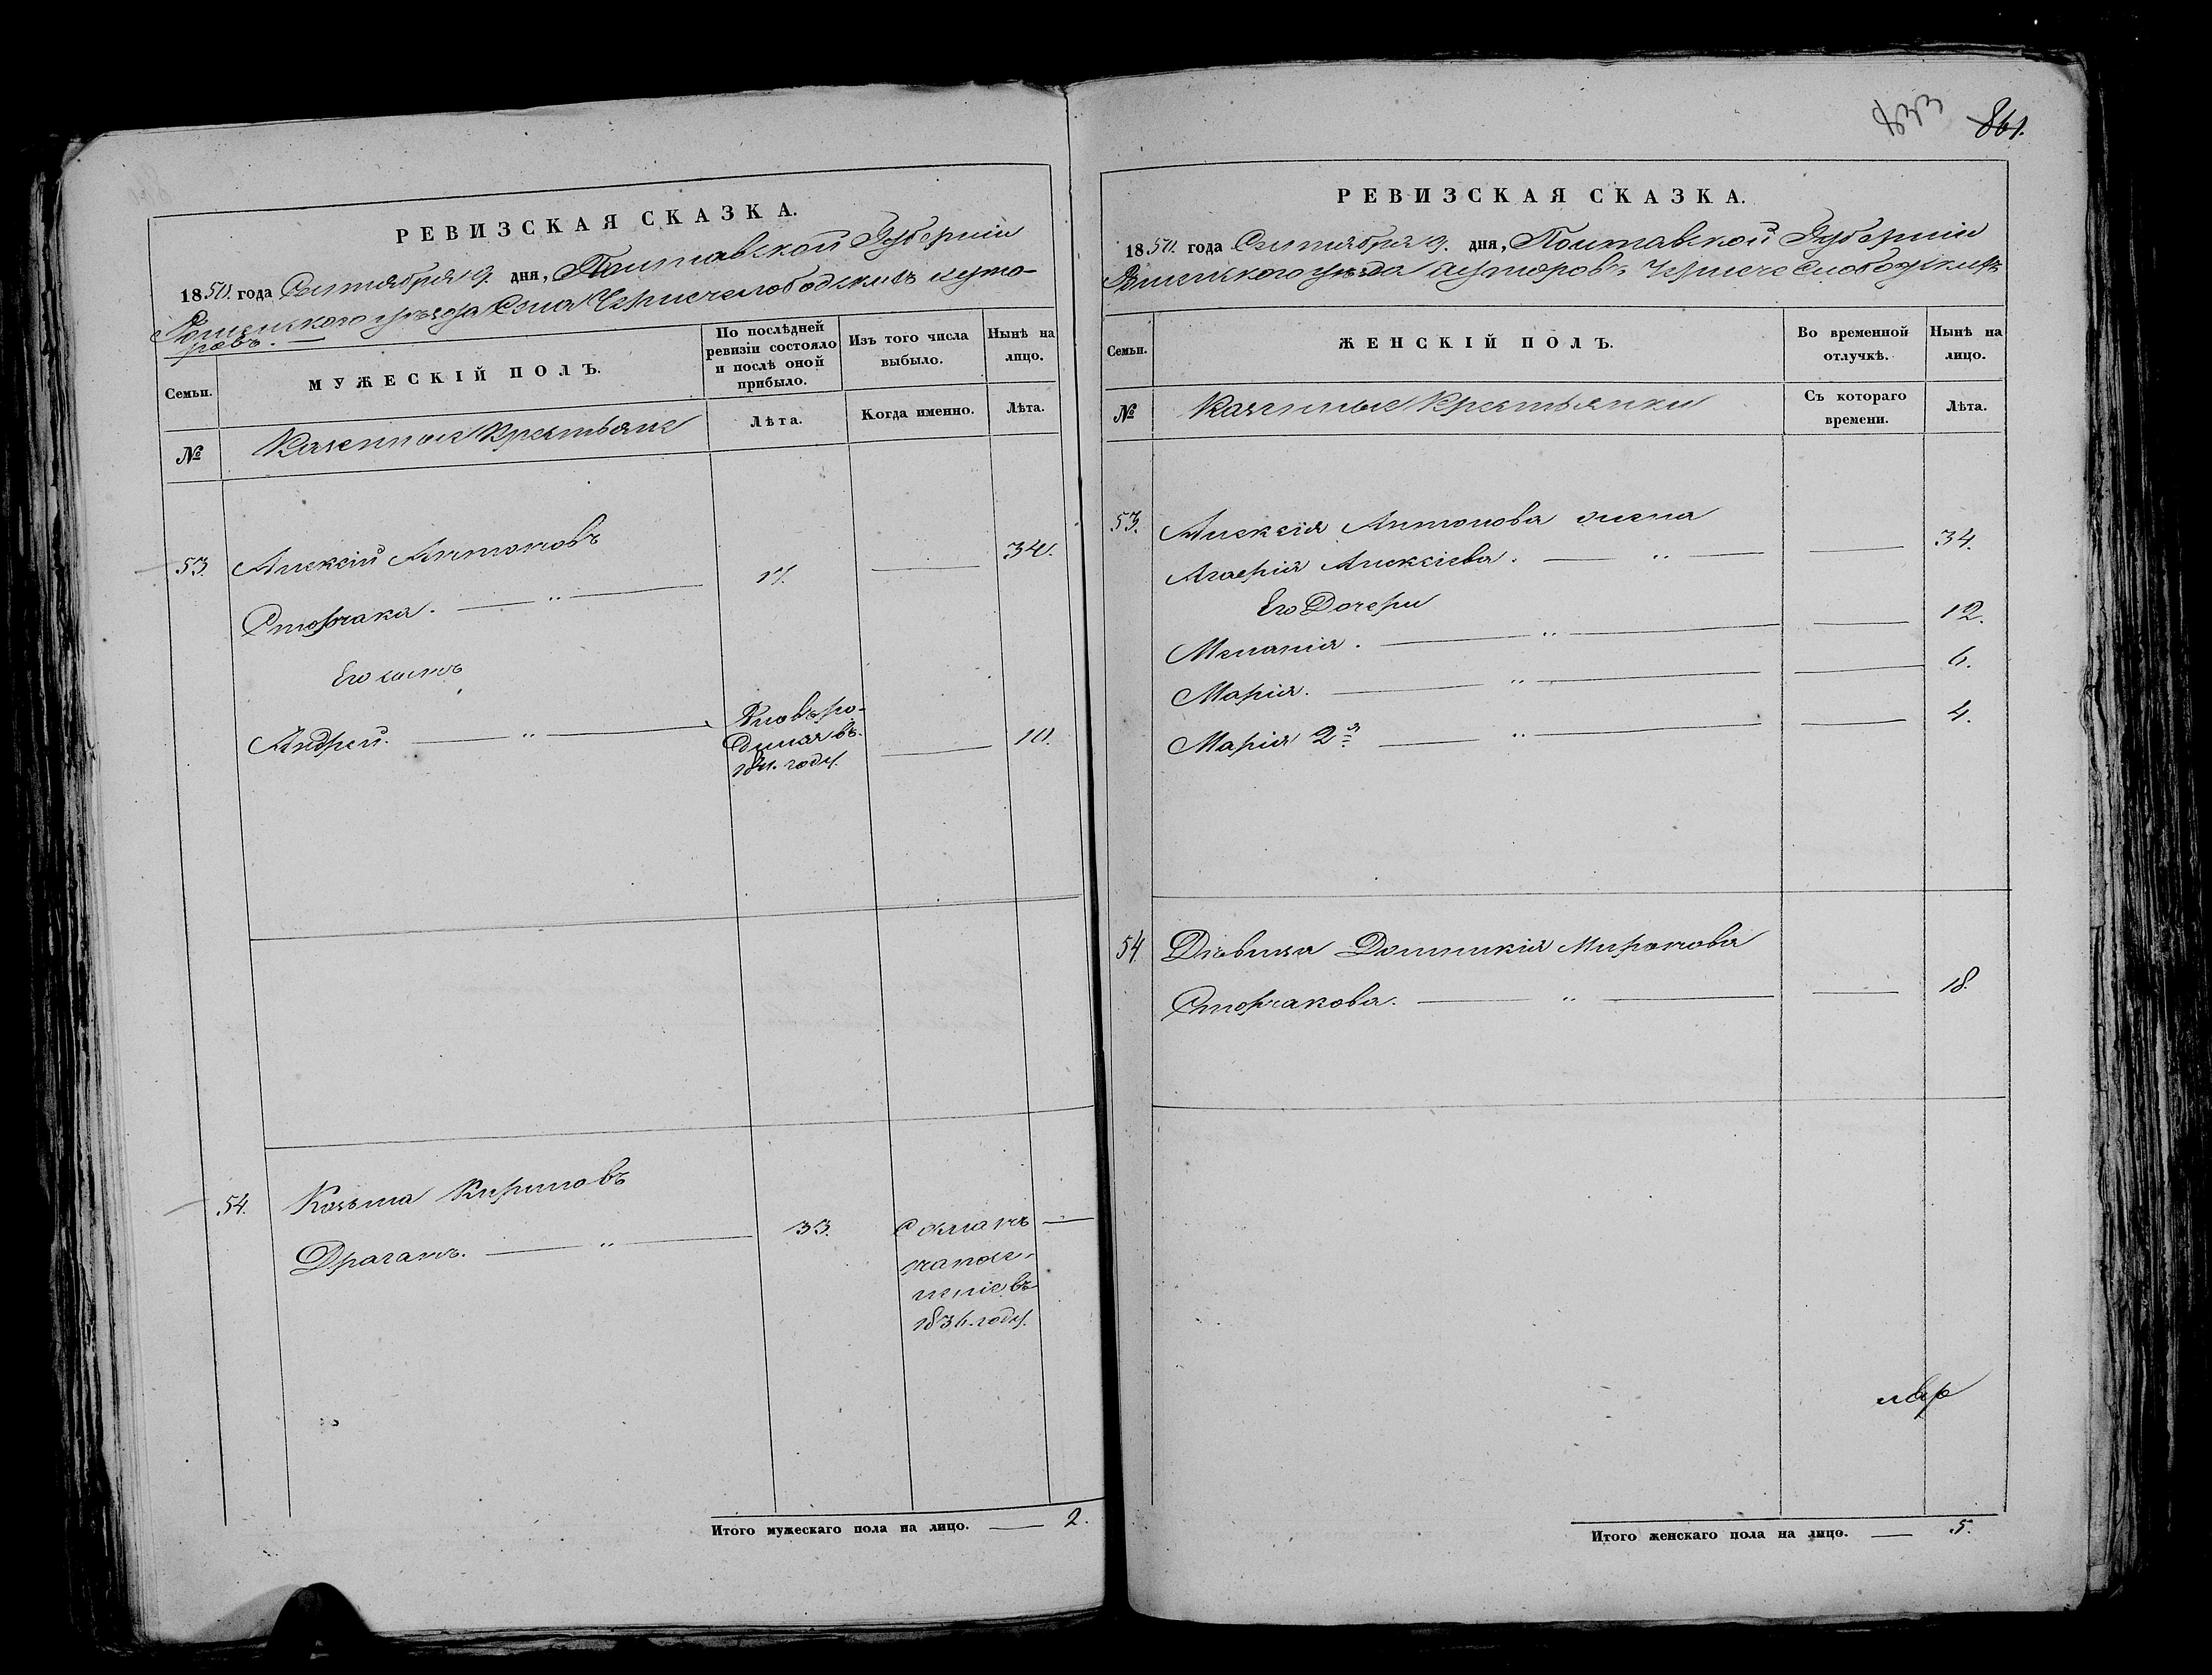 РЕВИЗСКАЯ СКАЗКА.
1850. года Сентября 9. дня, Полтавской Губерніи
Роменского уѣзда Села Чернечеслободскихъ хуто-
ровъ.
Семьи.
МУЖЕСКІЙ ПОЛЪ.
По послѣдней
ревизіи состояло
и послѣ оной
прибыло.
Изъ того числа
выбыло.
Нынѣ на
лицо.
№
Казенные Крестьяне
Лѣта.
Когда именно.
Лѣта.
53. Алексій Антоновъ
Сторчака. — „ — 17. — 34.
Его сынъ
Андрей. — „ — Вновь ро-
дился въ
184 году. — 10.
54. Козьма Кириловъ
Драганъ. — „ — 33.
1836. году.
Итого мужескаго пола на лицо. — 2.
833 861.
РЕВИЗСКАЯ СКАЗКА.
1850. года Сентября 9. дня, Полтавской Губерніи
Роменского уѣзда хуторовъ Чернече Слободскихъ
Семьи.
ЖЕНСКІЙ ПОЛЪ.
Во временной
отлучкѣ.
Нынѣ на
лицо.
№
Казенные Крестьянки
Съ котораго
времени.
Лѣта.
53. Алексія Антонова жена
Агафія Алексіева. — „ — — 34.
Его Дочери
Меланія. — „ — — 12.
Марія. — „ — — 6.
Марія 2я — „ — — 4.
54. Дѣвица Домникія Миронова
Сторчакова. — „ — — 18.
Итого женскаго пола на лицо. — 5.